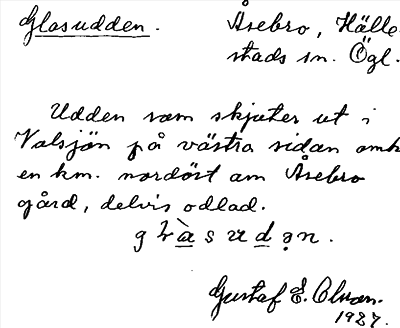 Glasudden.
Åsebro, Hälle-
stads sn. Ögl.
Udden som skjuter ut i
Valsjön på västra sidan omkr
en km. nordöst om Åsebro
gård, delvis odlad.
Gustaf E.
1927.